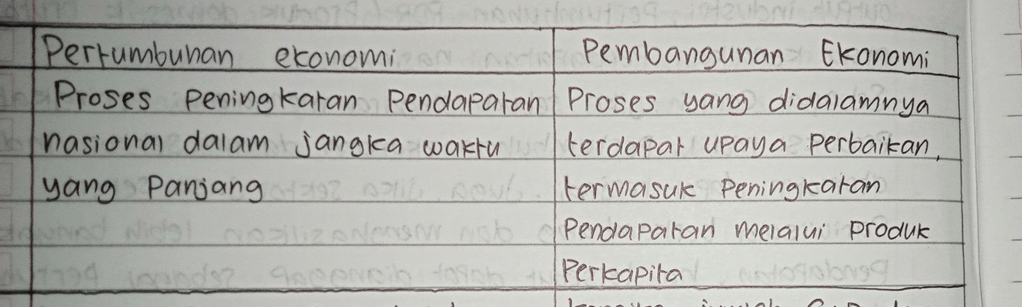 Pertumbuhan ekonomi
Proses Peningkatan Pendapatan
nasional dalam jangka waktu
yang Panjang
Pembangunan Ekonomi
Proses yang didalamnya
terdapat upaya Perbaikan,
termasuk Peningkatan
Pendapatan melalui Produk
Perkapita